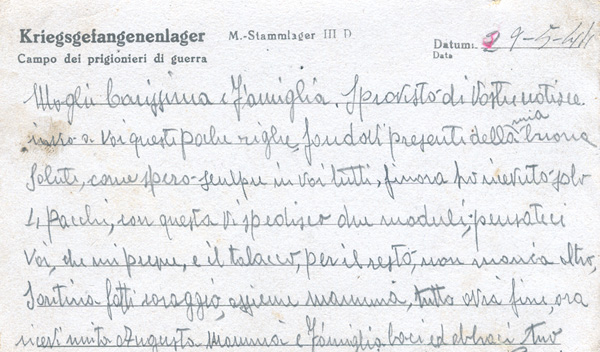 Kriegsgefangenenlager M.-Stammlager III D
Campo dei prigionieri di guerra
Datum: 29-5-44
Data
Moglie Carissima e Famiglia, Sprovisto di Vostre notizie
invio a Voi queste poche righe, facendovi presenti della mia buona
Salute, come spero sempre in voi tutti, finora ho ricevuto solo
pacchi, con questa vi spedisco due moduli, pensateci
Voi, che mi preme, e il tabacco, per il resto, non manca altro,
Santina fatti coraggio, assieme mamma, tutto avrà fine, ora
ricevi unita Augusta Mamma e Famiglia baci ed abbracci tuo